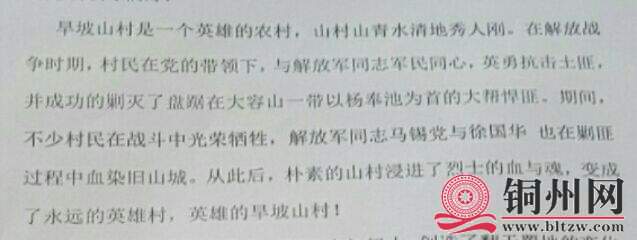 旱坡山村是一个英雄的农村，山村山青水清地秀人刚。在解放战
争时期，村民在党的带领下，与解放军同志军民同心，英勇抗击土匪，
并成功的剿灭了盘踞在大容山一带以杨奉池为首的大帮悍匪。期间，
不少村民在战斗中光荣牺牲，解放军同志马锡党与徐国华 也在剿匪
过程中血染旧山城。从此后，朴素的山村浸进了烈士的血与魂，变成
了永远的英雄村，英雄的旱坡山村！
铜州网
www.bltzw.com